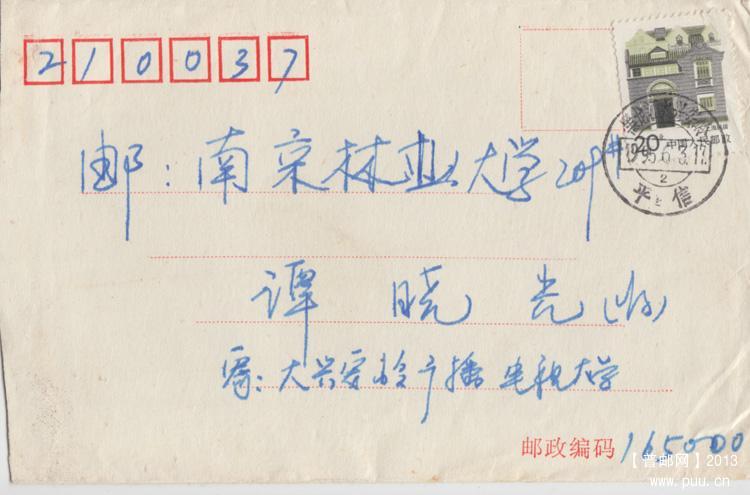 210037
邮：南京林业大学209#
谭晓光(收)
寄：大兴安岭广播电视大学
邮政编码 165000
20分 中国人民邮政
1995.6.3.17
2
平信
【普邮网】2013
www.puu.cn